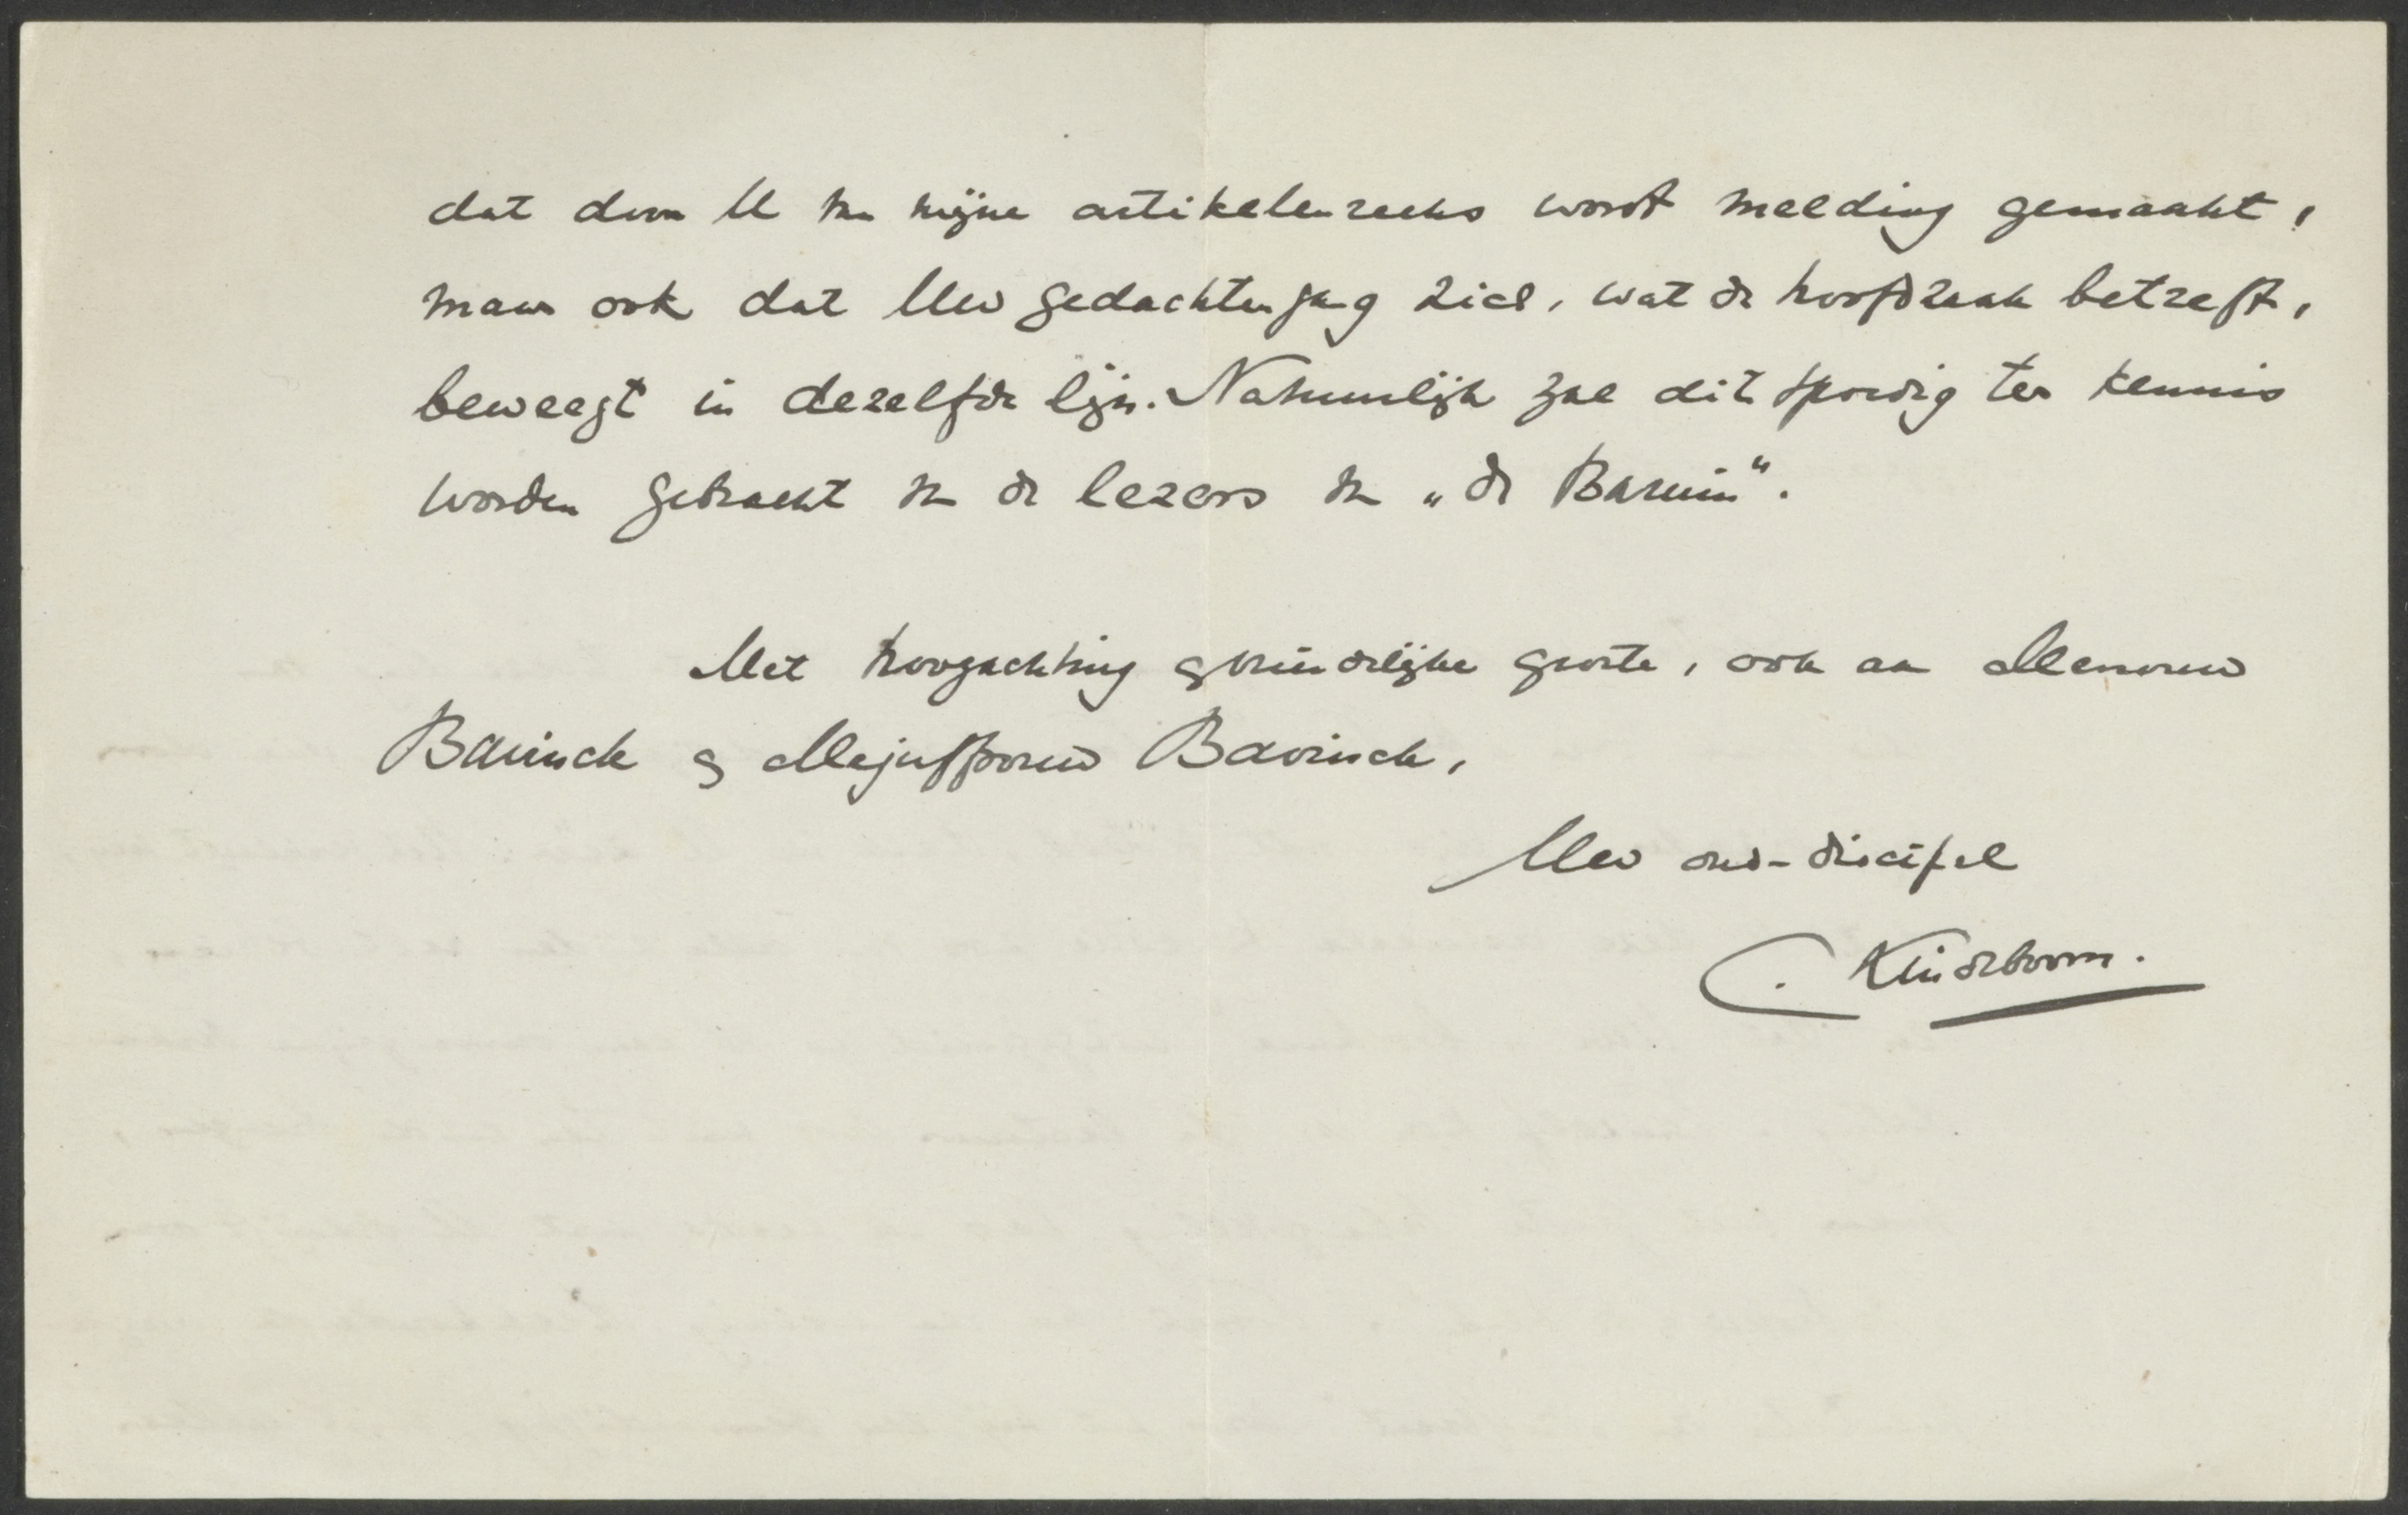 dat door U van mijne artikelenreeks wordt melding gemaakt,
maar ook dat Uw gedachtengang zich, wat de hoofdzaak betreft,
beweegt in dezelfde lijn. Natuurlijk zal dit spoedig ter kennis
worden gebracht van de lezers van „de Bazuin".
Met hoogachting & vriendelijke groete, ook aan Mevrouw
Bavinck & Mejuffrouw Bavinck,
Uw oud-discipel
C. Lindeboom.